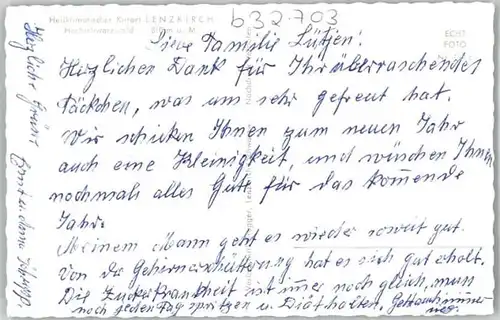 b32-703
Heilklimatischer Kurort LENZKIRCH
Hochschwarzwald 810 m ü. M.
ECHT
FOTO
Liebe Familie Lütjen!
Herzlichen Dank für Ihr überraschendes
Päckchen, was uns sehr gefreut hat.
Wir schicken Ihnen zum neuen Jahr
auch eine Kleinigkeit, und wünschen Ihnen
nochmals alles Gute für das kommende
Jahr.
Meinem Mann geht es wieder soweit gut.
Von der Gehirnerschütterung hat es sich gut erholt.
Die Zuckerkrankheit ist immer noch gleich, muss
noch jeden Tag spritzen u. Diät halten.
Herzliche Grüße